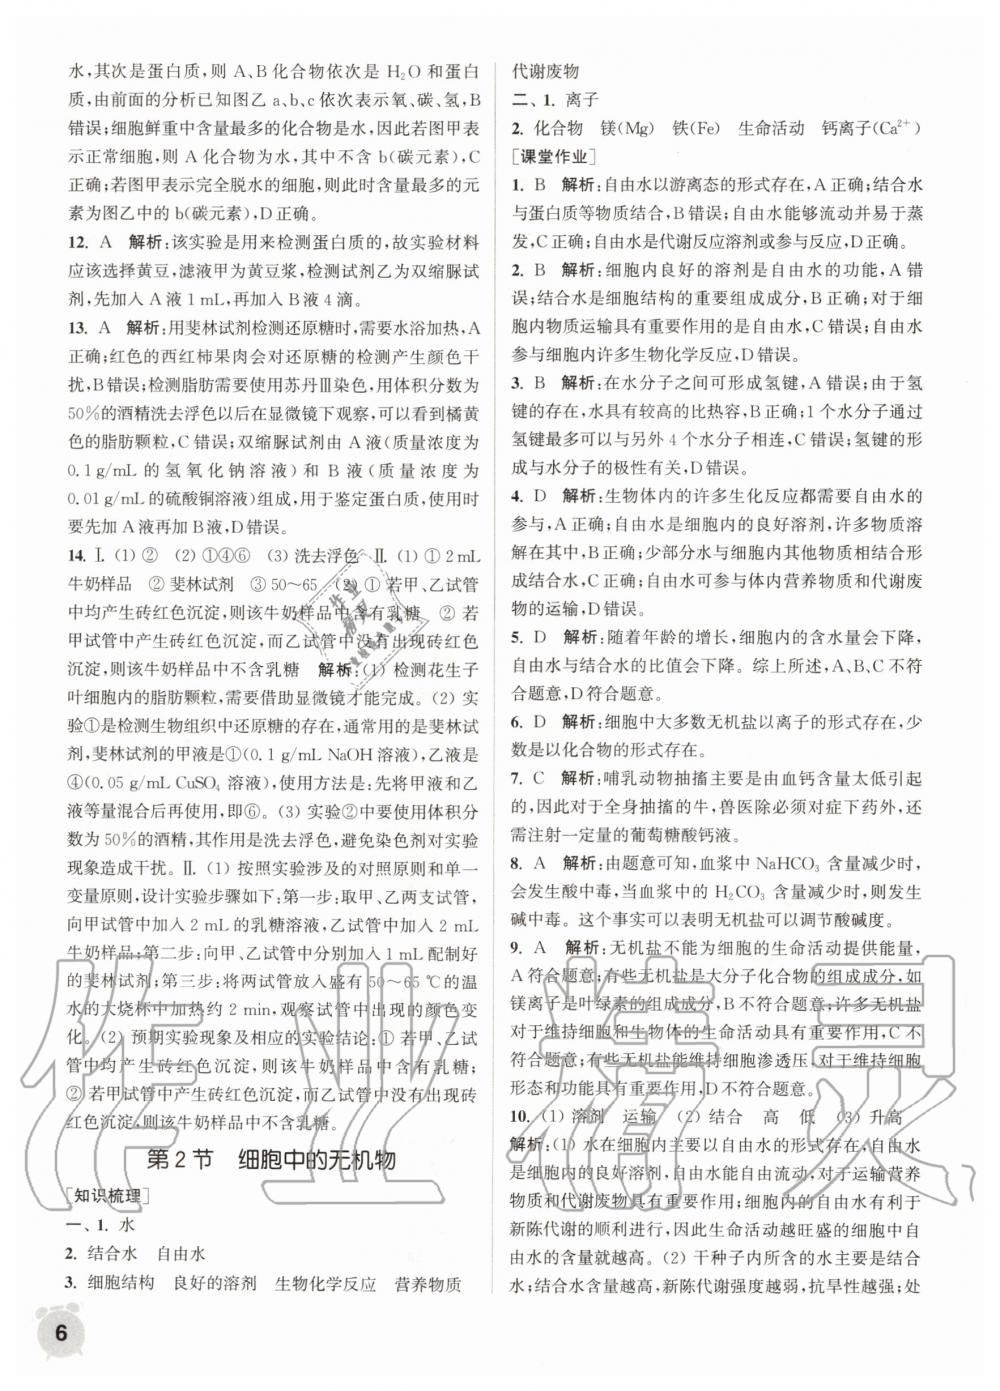 水,其次是蛋白质,则 A、B化合物依次是 H₂O 和蛋白
质,由前面的分析已知图乙 a、b、c 依次表示氧、碳、氢,B
错误;细胞鲜重中含量最多的化合物是水,因此若图甲表
示正常细胞,则 A化合物为水,其中不含 b(碳元素),C
正确;若图甲表示完全脱水的细胞,则此时含量最多的元
素为图乙中的 b(碳元素),D正确。
12. A 解析:该实验是用来检测蛋白质的,故实验材料
应该选择黄豆,滤液甲为黄豆浆,检测试剂乙为双缩脲试
剂,先加入 A 液 1 mL,再加入 B 液 4 滴。
13. A 解析:用斐林试剂检测还原糖时,需要水浴加热,A
正确;红色的西红柿果肉会对还原糖的检测产生颜色干
扰,B错误;检测脂肪需要使用苏丹Ⅲ染色,用体积分数为
50%的酒精洗去浮色以后在显微镜下观察,可以看到橘黄
色的脂肪颗粒,C 错误;双缩脲试剂由 A 液(质量浓度为
0.1 g/mL 的氢氧化钠溶液)和 B 液(质量浓度为
0.01 g/mL的硫酸铜溶液)组成,用于鉴定蛋白质,使用时
要先加 A液再加 B液,D错误。
14. Ⅰ. (1) ② (2) ①④⑥ (3) 洗去浮色 Ⅱ. (1) ① 2 mL
牛奶样品 ② 斐林试剂 ③ 50～65 (2) ① 若甲、乙试管
中均产生砖红色沉淀,则该牛奶样品中含有乳糖 ② 若
甲试管中产生砖红色沉淀,而乙试管中没有出现砖红色
沉淀,则该牛奶样品中不含乳糖 解析:(1) 检测花生子
叶细胞内的脂肪颗粒,需要借助显微镜才能完成。(2) 实
验①是检测生物组织中还原糖的存在,通常用的是斐林试
剂,斐林试剂的甲液是①(0.1 g/mL NaOH 溶液),乙液是
④(0.05 g/mL CuSO₄ 溶液),使用方法是:先将甲液和乙
液等量混合后再使用,即⑥。(3) 实验②中使用体积分
数为 50%的酒精,其作用是洗去浮色,避免染色剂对实验
现象造成干扰。Ⅱ. (1) 按照实验涉及的对照原则和单一
变量原则,设计实验步骤如下:第一步:取甲、乙两支试管,
向甲试管中加入 2 mL 的乳糖溶液,乙试管中加入 2 mL
牛奶样品;第二步:向甲、乙试管中分别加入 1 mL 配制好
的斐林试剂;第三步:将两试管放入盛有 50～65 ℃的温
水的大烧杯中加热约 2 min,观察试管中出现的颜色变
化。(2) 预期实验现象及相应的实验结论:① 若甲、乙试
管中均产生砖红色沉淀,则该牛奶样品中含有乳糖;
② 若甲试管中产生砖红色沉淀,而乙试管中没有出现砖
红色沉淀,则该牛奶样品中不含乳糖。
第 2 节 细胞中的无机物
[知识梳理]
一、1. 水
2. 结合水 自由水
3. 细胞结构 良好的溶剂 生物化学反应 营养物质
代谢废物
二、1. 离子
2. 化合物 镁(Mg) 铁(Fe) 生命活动 钙离子(Ca²⁺)
[课堂作业]
1. B 解析:自由水以游离态的形式存在,A正确;结合水
与蛋白质等物质结合,B错误;自由水能够流动并易于蒸
发,C正确;自由水是代谢反应溶剂或参与反应,D正确。
2. B 解析:细胞内良好的溶剂是自由水的功能,A 错
误;结合水是细胞结构的重要组成成分,B 正确;对于细
胞内物质运输具有重要作用的是自由水,C错误;自由水
参与细胞内许多生物化学反应,D错误。
3. B 解析:在水分子之间可形成氢键,A错误;由于氢
键的存在,水具有较高的比热容,B正确;1个水分子通过
氢键最多可以与另外 4 个水分子相连,C 错误;氢键的形
成与水分子的极性有关,D错误。
4. D 解析:生物体内的许多生化反应都需要自由水的
参与,A正确;自由水是细胞内的良好溶剂,许多物质溶
解在其中,B正确;少部分水与细胞内其他物质相结合形
成结合水,C正确;自由水可参与体内营养物质和代谢废
物的运输,D错误。
5. D 解析:随着年龄的增长,细胞内的含水量会下降,
自由水与结合水的比值会下降。综上所述,A、B、C 不符
合题意,D符合题意。
6. D 解析:细胞中大多数无机盐以离子的形式存在,少
数是以化合物的形式存在。
7. C 解析:哺乳动物抽搐主要是由血钙含量太低引起
的,因此对于全身抽搐的牛,兽医除必须对症下药外,还
需注射一定量的葡萄糖酸钙液。
8. A 解析:由题意可知,血浆中 NaHCO₃ 含量减少时,
会发生酸中毒,当血浆中的 H₂CO₃ 含量减少时,则发生
碱中毒。这个事实可以表明无机盐可以调节酸碱度。
9. A 解析:无机盐不能为细胞的生命活动提供能量,
A符合题意;有些无机盐是大分子化合物的组成成分,如
镁离子是叶绿素的组成成分,B不符合题意;许多无机盐
对于维持细胞和生物体的生命活动具有重要作用,C 不
符合题意;有些无机盐能维持细胞渗透压,对于维持细胞
形态和功能具有重要作用,D不符合题意。
10. (1) 溶剂 运输 (2) 结合 高 低 (3) 升高
解析:(1) 水在细胞内主要以自由水的形式存在,自由水
是细胞内的良好溶剂,可自由流动,对于运输营养
物质和代谢废物具有重要作用。细胞内的自由水有利于
新陈代谢的顺利进行,因此生命活动越旺盛的细胞中自
由水的含量就越高。(2) 干种子内所含的水主要是结合
水;结合水含量越高,新陈代谢强度越弱,抗旱性越强;处
6
作业精灵